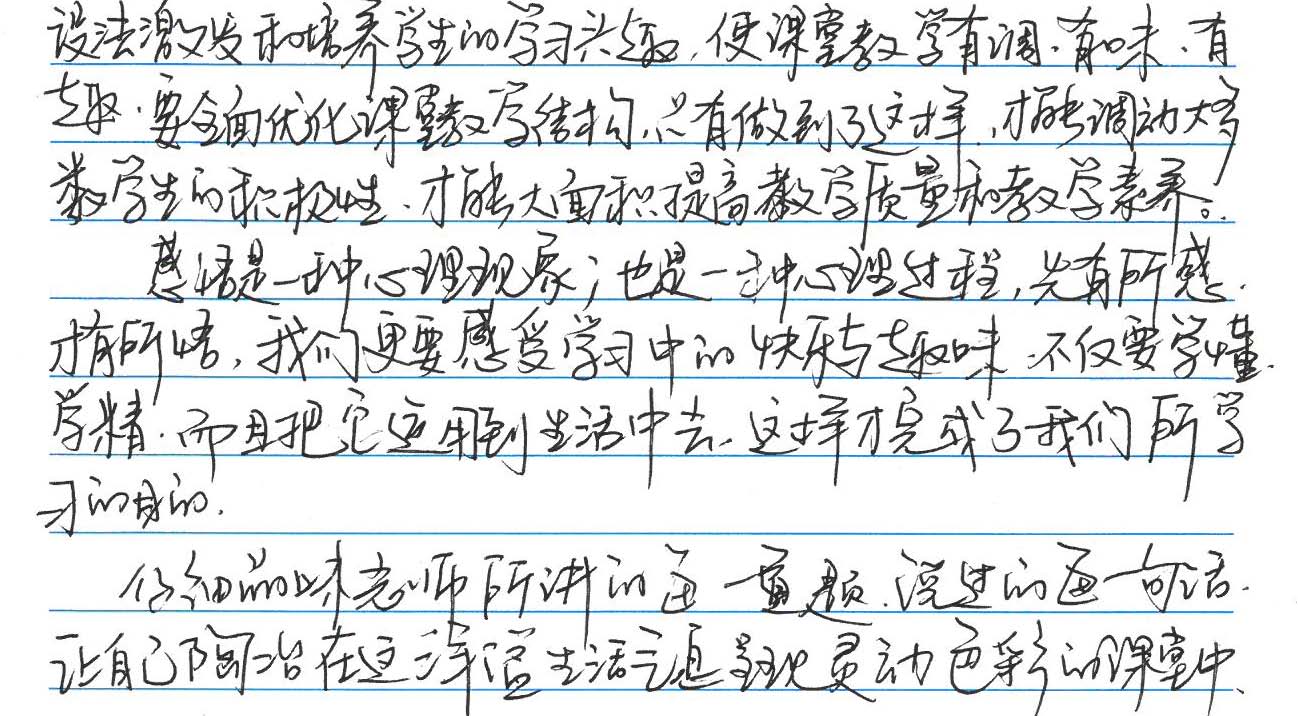 设法激发和培养学生的学习兴趣,使课堂教学有调、有味、有
趣、要全面优化课堂教学结构,只有做到了这样,才能调动大多
数学生的积极性、才能大面积提高教学质量和教学素养。
感悟是一种心理现象;也是一种心理过程,先有所感、
才有所悟,我们更要感受学习中的快乐与趣味、不仅要学懂、
学精、而且把它运用到生活中去、这样才完成了我们所学
习的目的.
仔细品味老师所讲的每一道题、说过的每一句话、
让自己陶冶在这洋溢生活气息、灵动色彩的课堂中、